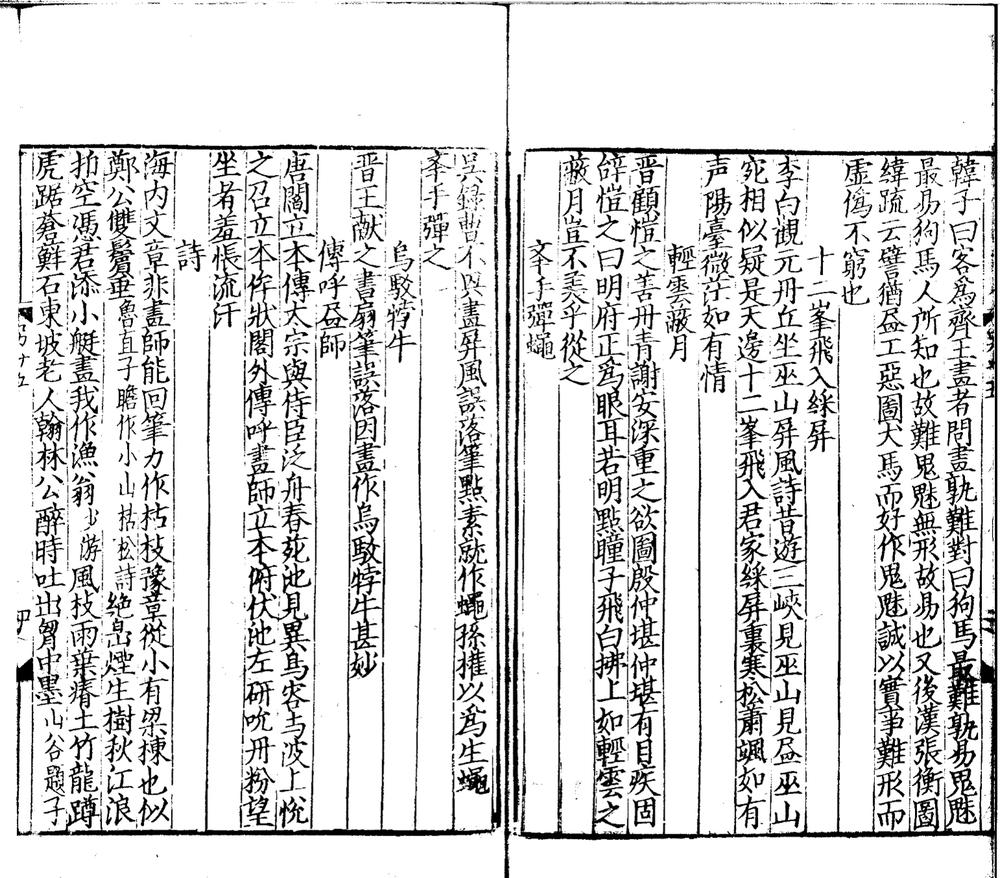 韓子曰客爲齊王畫者問畫孰難對曰狗馬最難孰易鬼魅
最易狗馬人所知也故難鬼魅無形故易也又後漢張衡圖
緯疏云譬猶畫工惡圖犬馬而好作鬼魅誠以實事難形而
虛僞不窮也
十二峯飛入綵屏
李白觀元丹丘坐巫山屏風詩昔遊三峽見巫山見畫巫山
宛相似疑是天邊十二峯飛入君家綵屏裏寒松蕭颯如有
声陽臺微茫如有情
輕雲蔽月
晋顧愷之善丹青謝安深重之欲圖殷仲堪仲堪有目疾固
辝愷之曰明府正爲眼耳若明點瞳子飛白拂上如輕雲之
蔽月豈不美乎從之
㪯手彈蠅
吳録曹不興畫屏風誤落筆點素就作蠅孫權以爲生蠅
㪯手彈之
烏駁牸牛
晋王献之書扇筆誤落因畫作烏駁牸牛甚妙
傳呼畫師
唐閻立本傳太宗與侍臣泛舟春苑池見異鳥容与波上悅
之召立本侔狀閣外傳呼畫師立本俯伏池左研吮丹粉望
坐者羞悵流汗
詩
海内文章非畫師能回筆力作枯枝豫章從小有梁棟也似
鄭公雙鬢垂魯直子瞻作小山枯松詩絶島煙生樹秋江浪
拍空馮君添小艇畫我作漁翁少游風枝雨葉瘠土竹龍蹲
虎踞蒼蘚石東坡老人翰林公醉時吐出胷中墨山谷題子